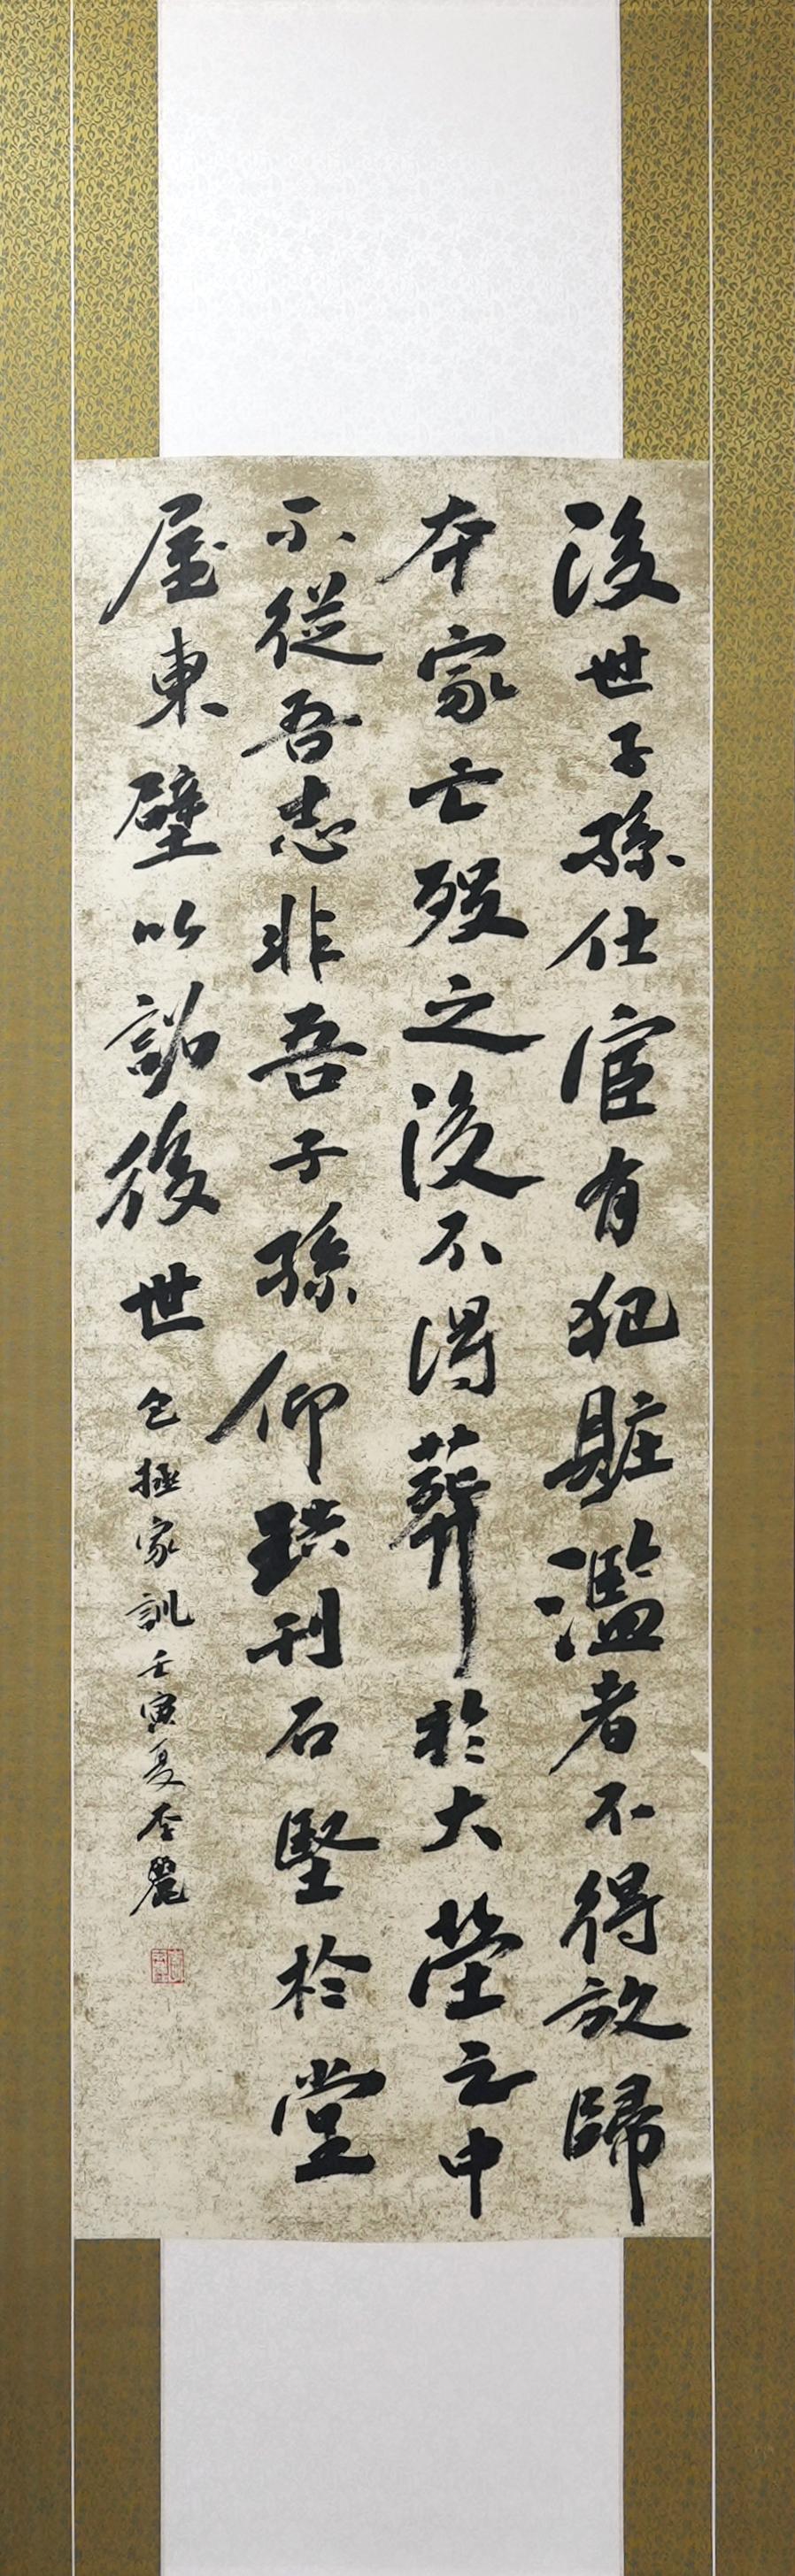 後世子孫仕宦有犯賍濫者不得放歸
本家亡歿之後不得葬於大塋之中
不從吾志非吾子孫仰珙刊石堅於堂
屋東壁以詔後世
包拯家訓壬寅夏李麗